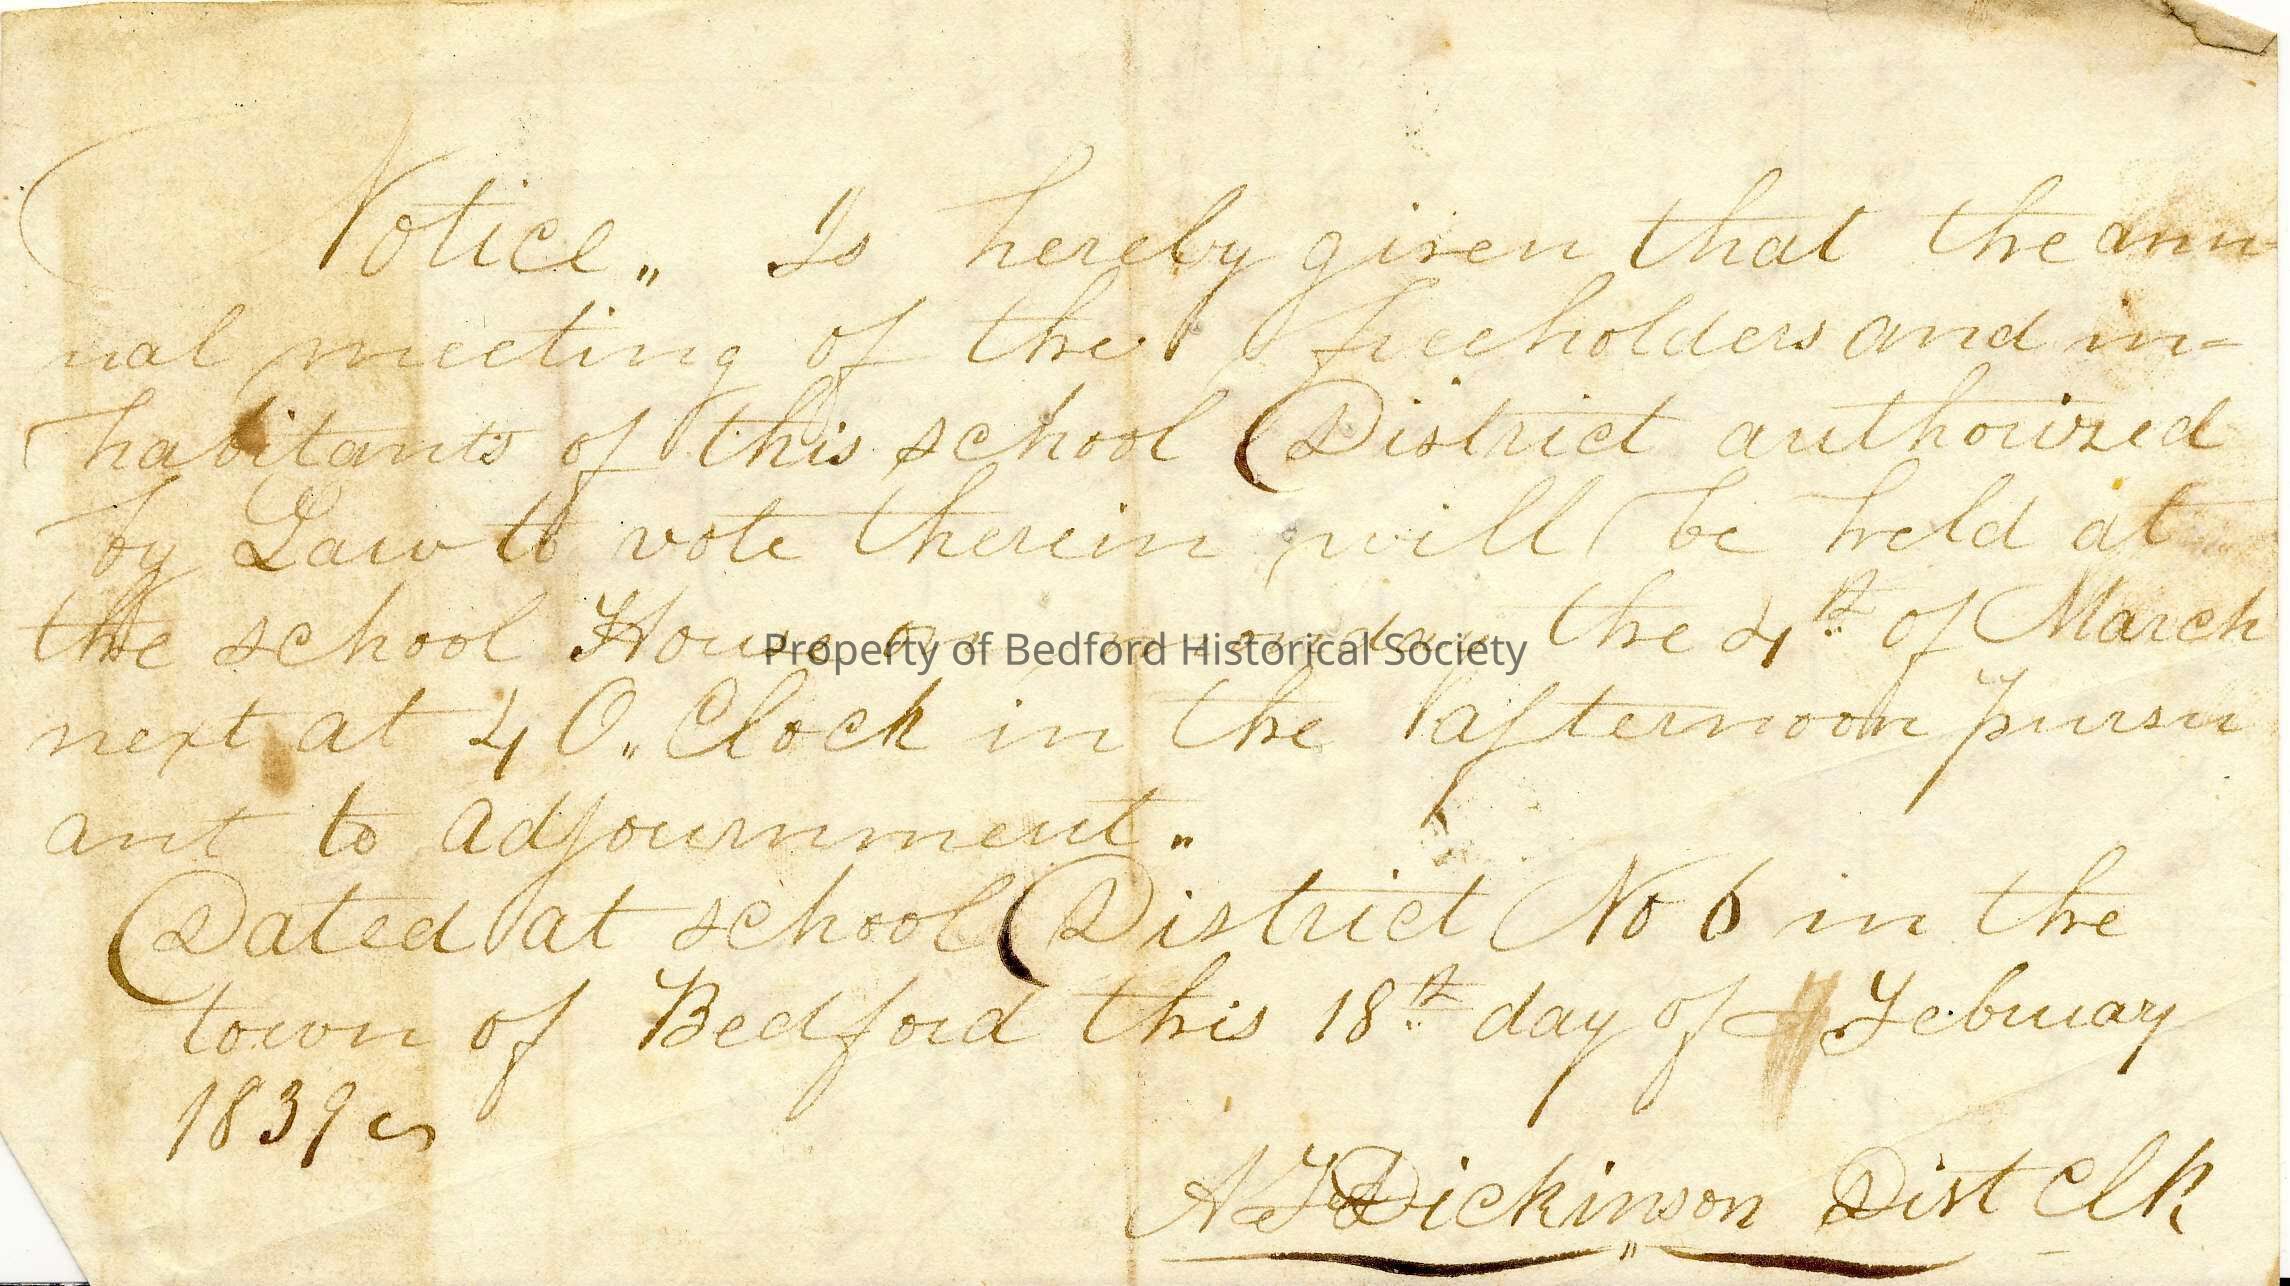 Notice„ Is hereby given that the ann
ual meeting of the freeholders and in-
habitants of this school District authorized
by Law to vote therein will be held at
the school House on monday the 4th of March
Property of Bedford Historical Society
next at 4 O„Clock in the afternoon pursu
ant to adjournment„
Dated at school District No 6 in the
town of Bedford this 18th day of Febuary
1839
Dickinson Dist Clk